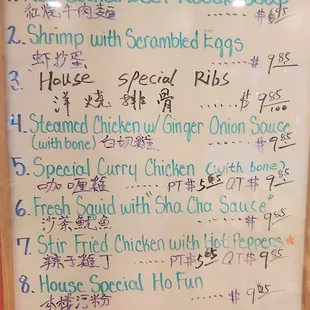 Beef Noodle Soup
紅燒牛肉麵 ...... $
2. Shrimp with Scrambled Eggs
虾抄蛋 ...... $ 9.85
3 House special Ribs
洋燒排骨 ...... $ 9.85
4. Steamed Chicken w/ Ginger Onion Sauce
(with bone) 白切雞 ...... $ 9.85
5. Special Curry Chicken (with bone)
咖喱雞 PT$ QT$ 9.85
6. Fresh Squid with "Sha Cha Sauce"
沙茶魷魚 ...... $ 9.85
7. Stir Fried Chicken with Hot Peppers
辣子雞丁 PT$ QT$ 9.85
8. House Special Ho Fun
本樓河粉 ...... $